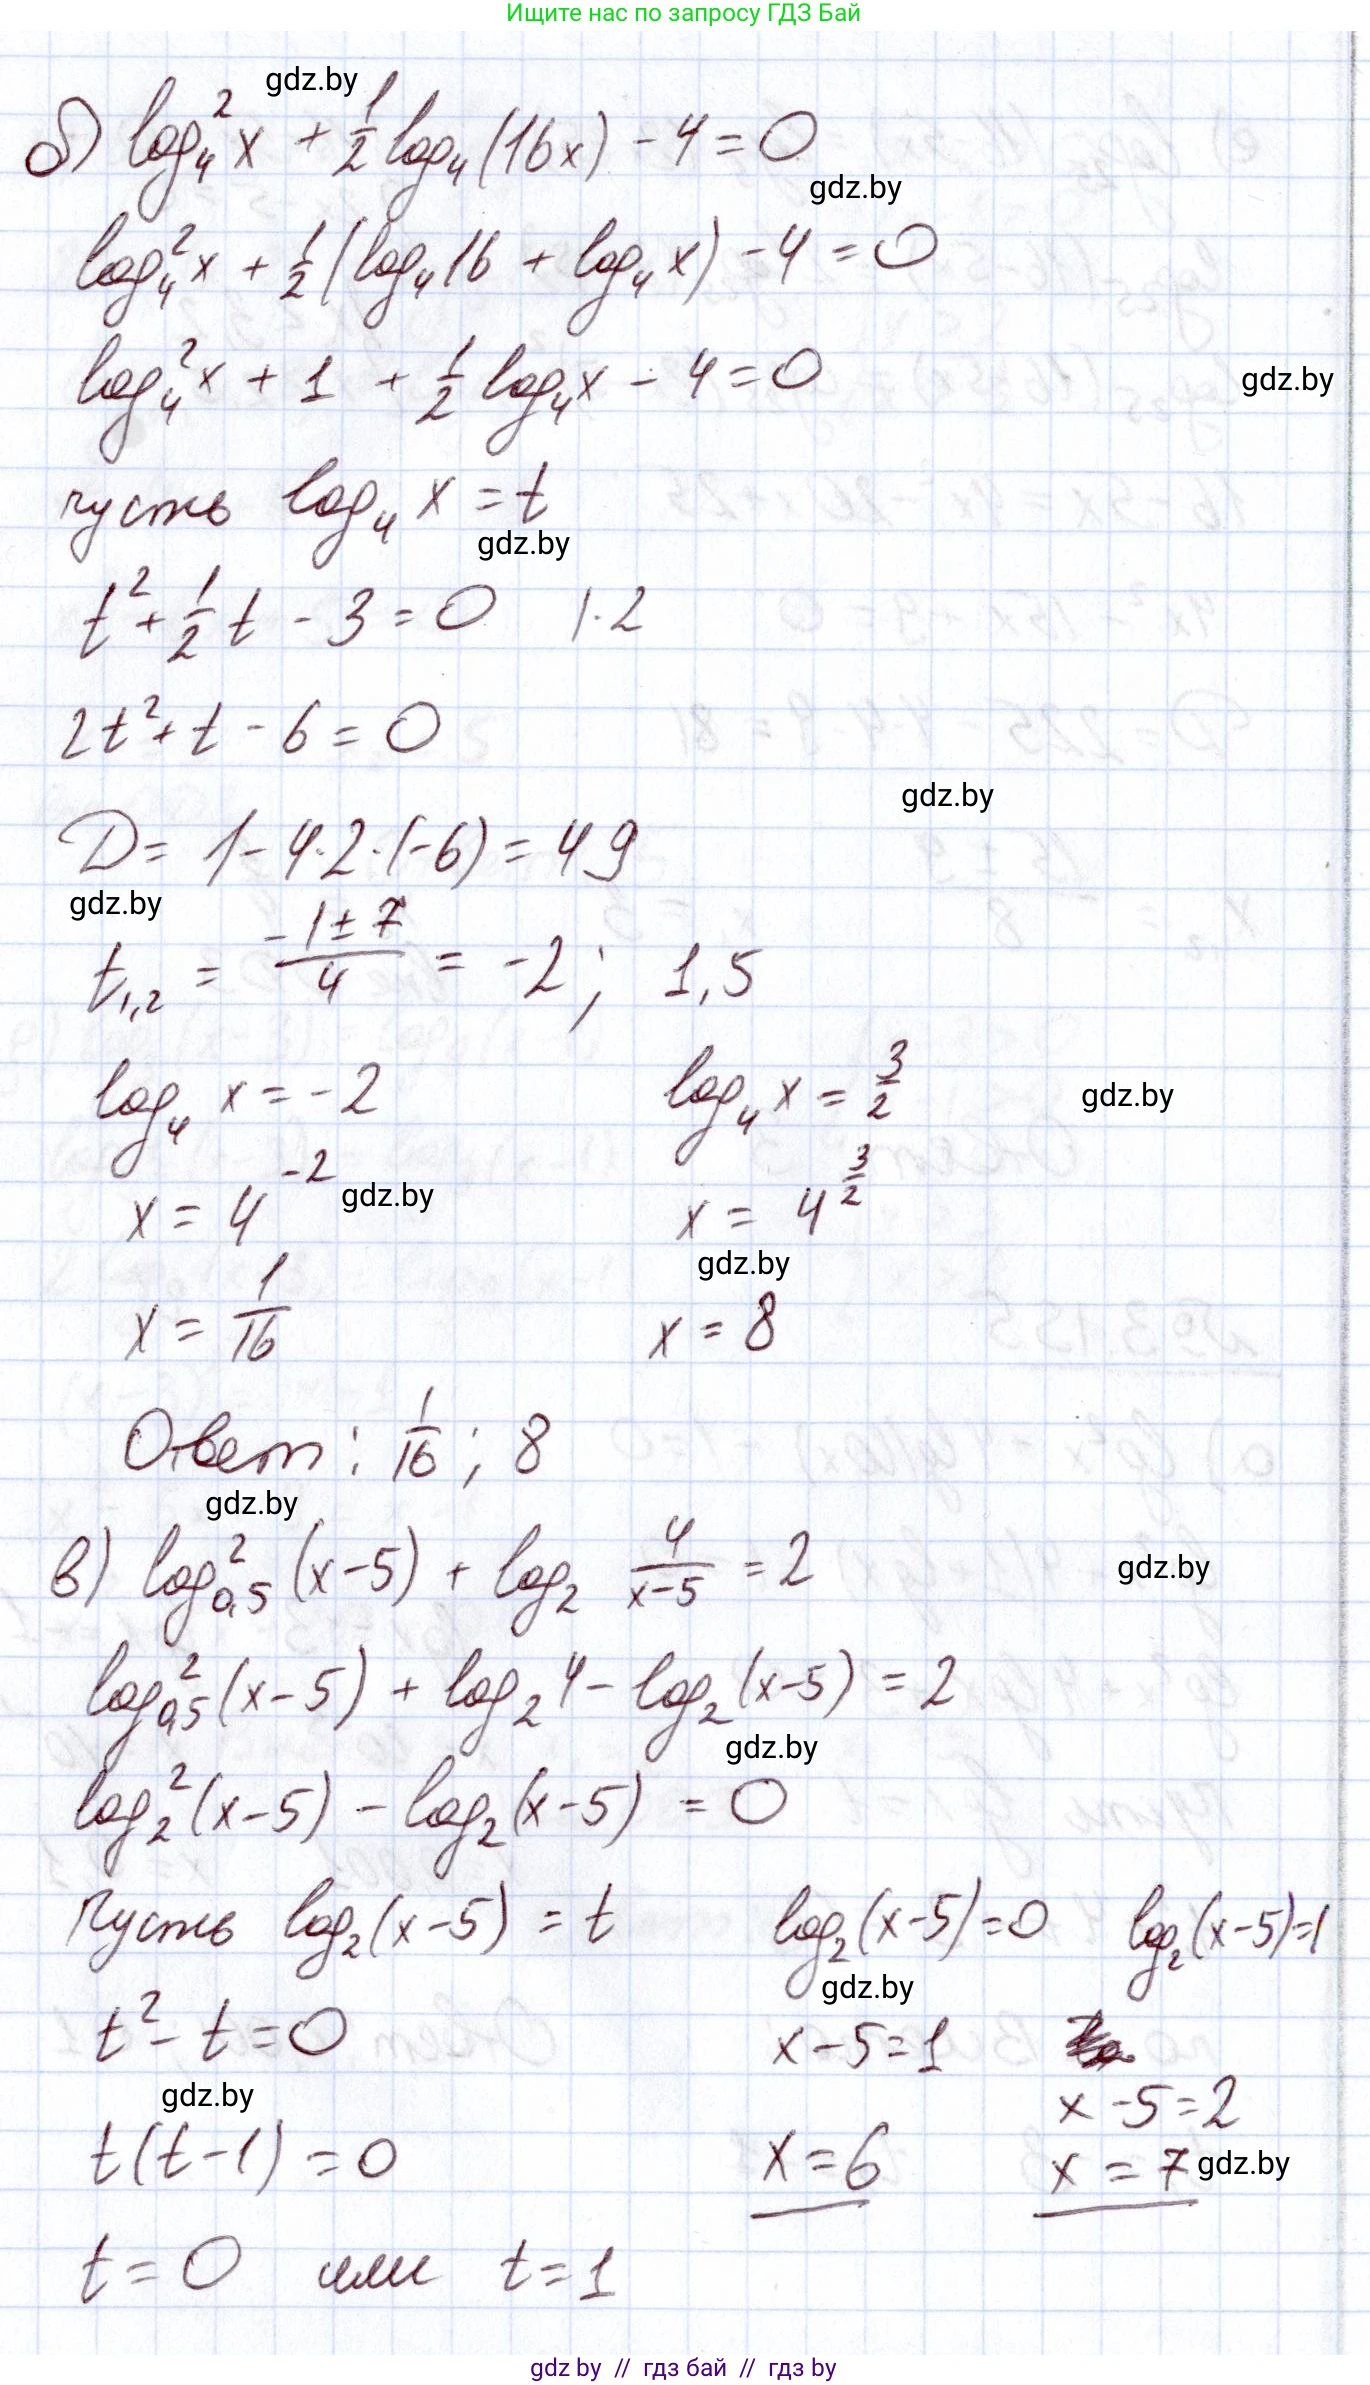 Ищите нас по запросу ГДЗ Бай
gdz.by
б) log₄²x + 1/2 log₄(16x) - 4 = 0
gdz.by
log₄²x + 1/2 (log₄16 + log₄x) - 4 = 0
log₄²x + 1 + 1/2 log₄x - 4 = 0
gdz.by
пусть log₄ x = t
gdz.by
t² + 1/2 t - 3 = 0 |·2
2t² + t - 6 = 0
gdz.by
D = 1 - 4·2·(-6) = 49
gdz.by
t₁,₂ = (-1 ± 7)/4 = -2 ; 1,5
log₄ x = -2 log₄ x = 3/2 gdz.by
x = 4⁻² gdz.by x = 4^(3/2)
gdz.by
x = 1/16 x = 8
Ответ : 1/16 ; 8
gdz.by
в) log²₀,₅ (x-5) + log₂ 4/(x-5) = 2
gdz.by
log²₀,₅ (x-5) + log₂ 4 - log₂ (x-5) = 2
gdz.by
log₂² (x-5) - log₂ (x-5) = 0
Пусть log₂ (x-5) = t log₂ (x-5) = 0 log₂ (x-5) = 1
gdz.by
t² - t = 0 x - 5 = 1
gdz.by x - 5 = 2
t(t-1) = 0 x = 6 x = 7 gdz.by
t = 0 или t = 1
gdz by // гдз бай // гдз by